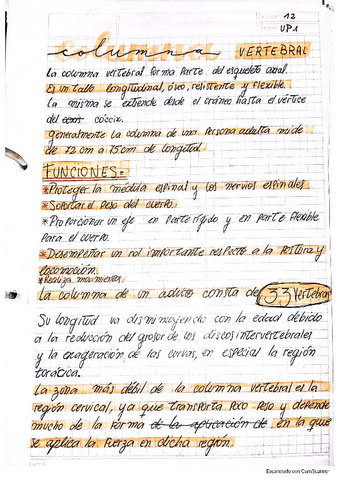 12
UP1
columna VERTEBRAL
La columna vertebral forma parte del esqueleto axial.
Es un tallo longitudinal, óseo, resistente y flexible.
La misma se extiende desde el cráneo hasta el vértice
del cóccix.
Generalmente la columna de una persona adulta mide
de 72 cm a 75cm de longitud.
FUNCIONES:
*Proteger la médula espinal y los nervios espinales
*Soportar el peso del cuerpo.
*Proporcionar un eje en parte rígido y en parte flexible
para el cuerpo.
*Desempeñar un rol importante respecto a la postura y
locomoción.
*Realiza movimientos
La columna de un adulto consta de 33 vertebras
Su longitud va disminuyendo con la edad debido
a la reducción del grosor de los discos intervertebrales
y la exageración de las curvas, en especial la región
torácica.
La zona más débil de la columna vertebral es la
región cervical, ya que transporta poco peso y depende
mucho de la forma de la aplicación de en la que
se aplica la fuerza en dicha región.
Escaneado con CamScanner